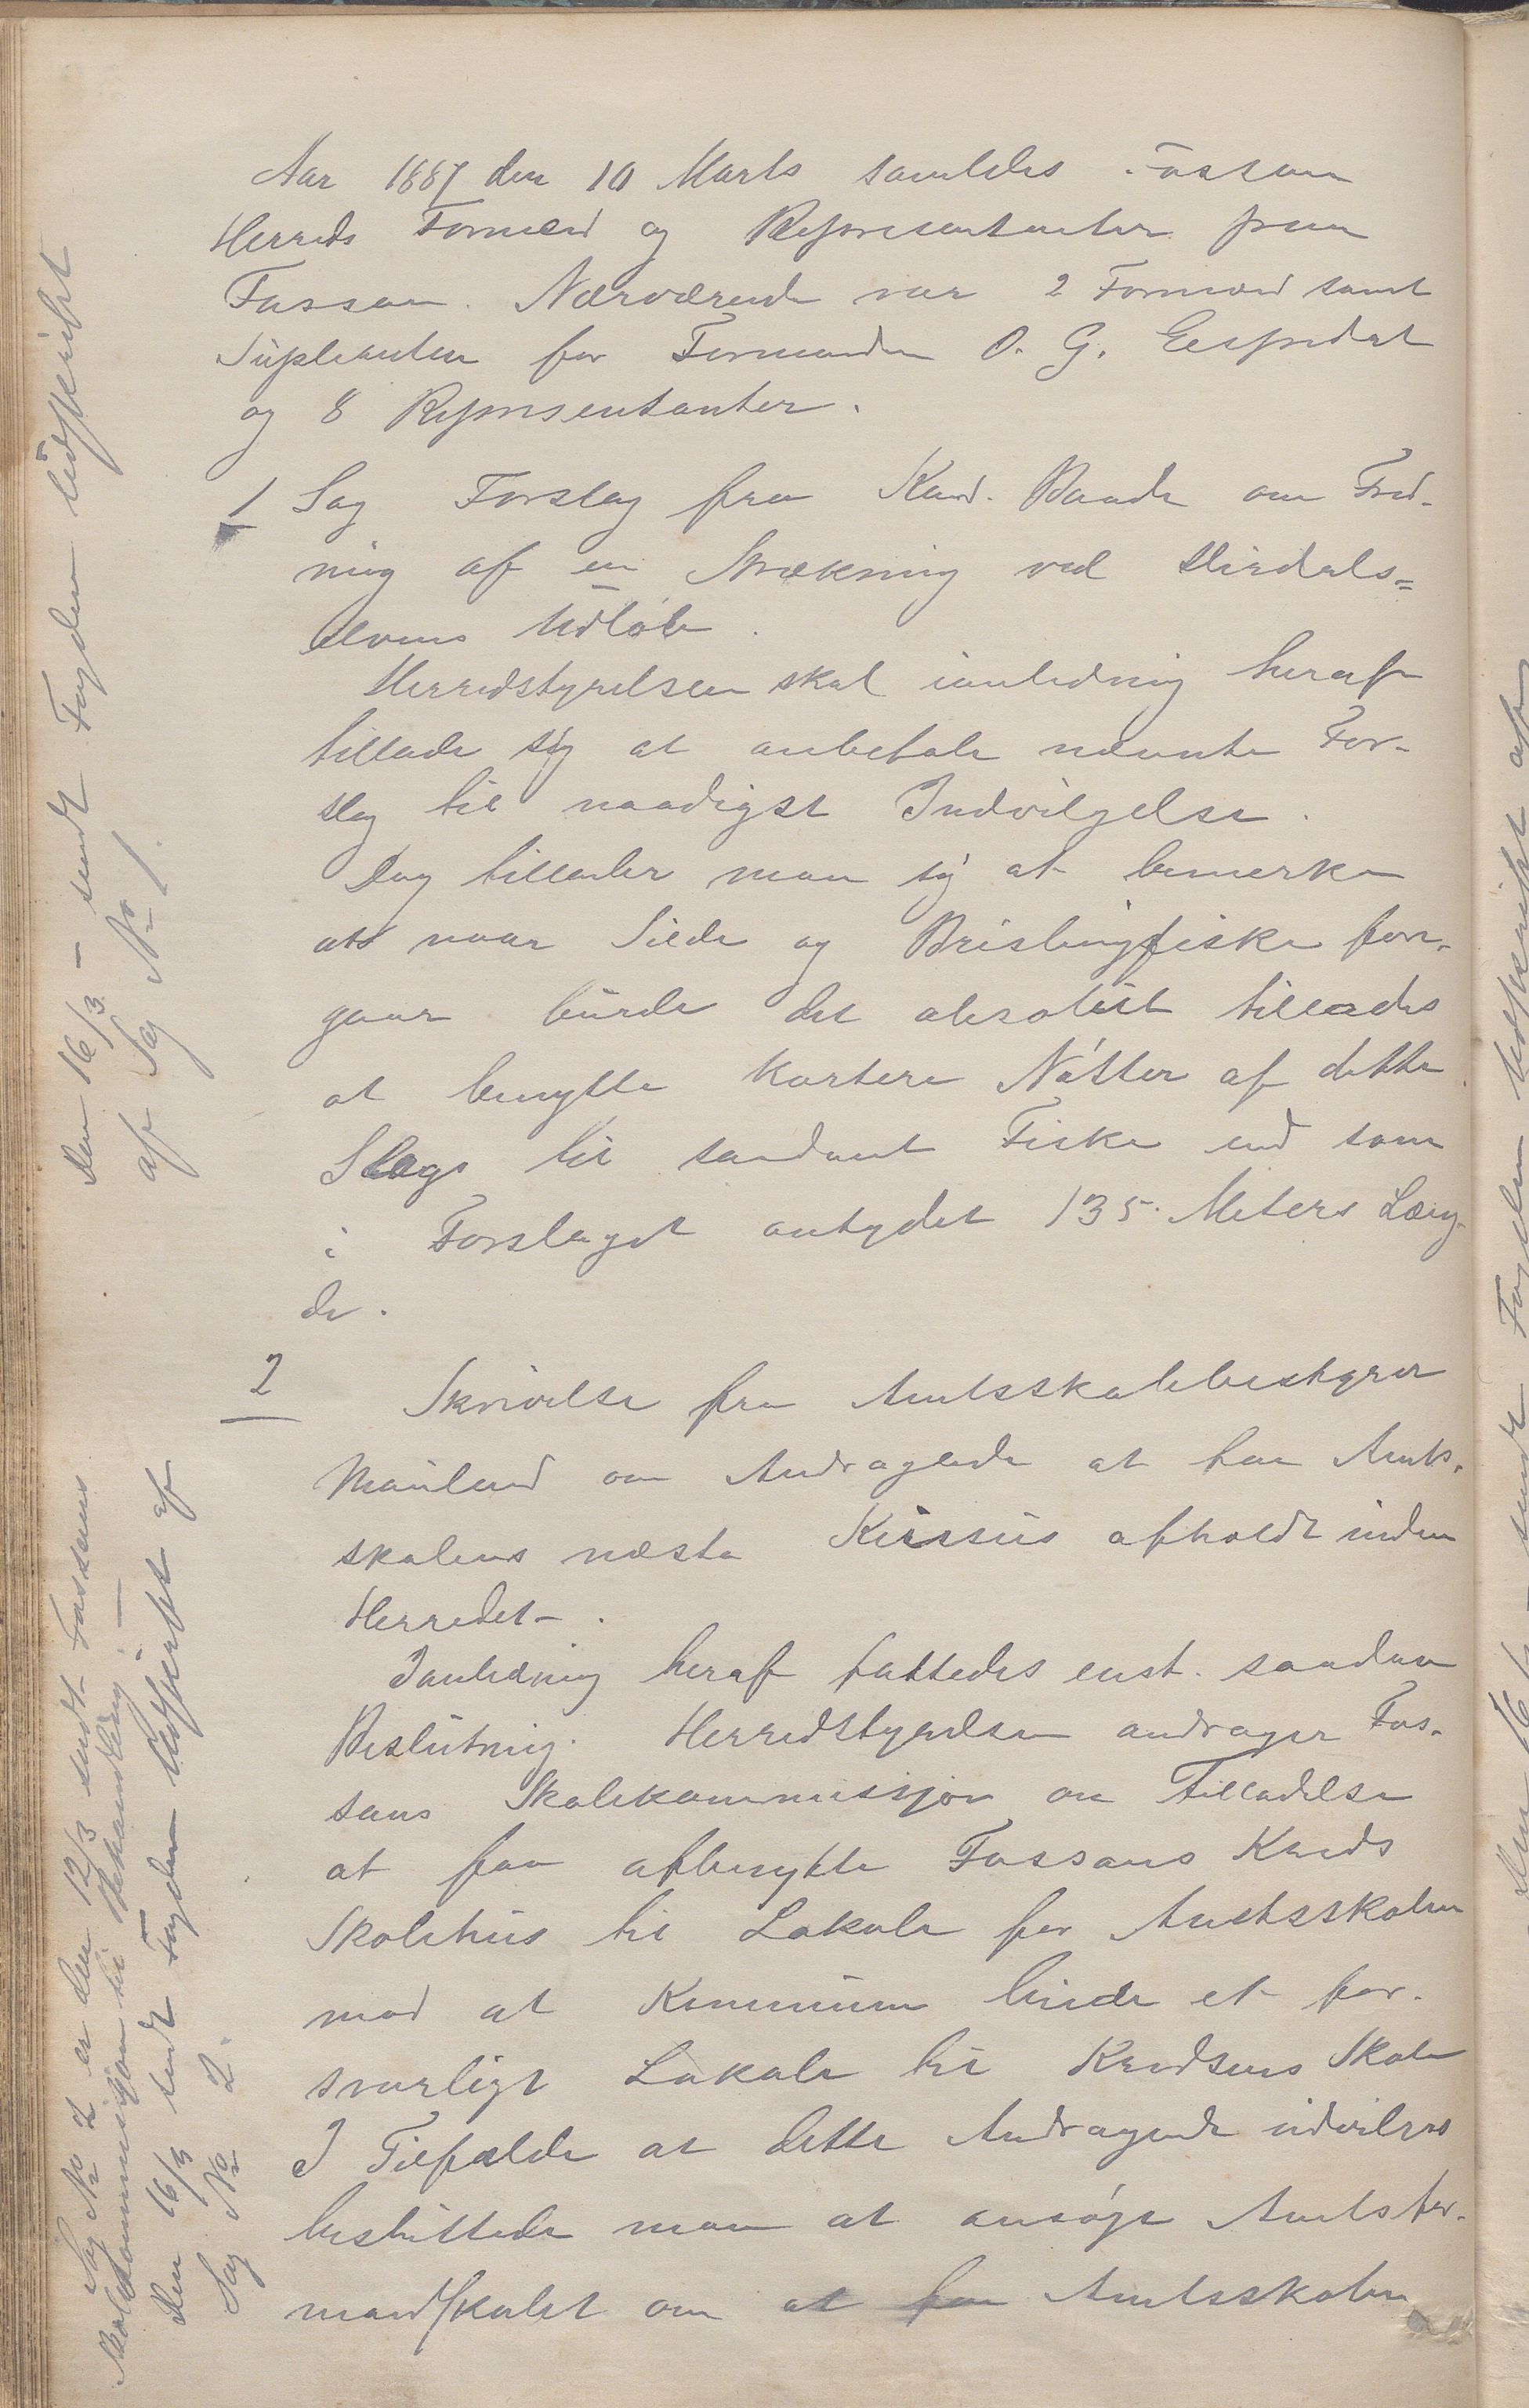 Aar 1887 den 10 Marts samledes Fossan
Herreds Formænd og Representanter paa
Fossan. Nærværende var 2 Formænd samt
Supleanten for Formanden O. G. Eespedal
og 8 Representanter.
1 Sag Forslag fra Kand. Baade om Fred-
ning af en Strækning ved Dirdals-
elvens Udløb.
Herredstyrelsen skal ianledning heraf
tillade sig at anbefale nævnte For-
slag til naadigst Indvilgelse.
Dog tillader man sig at bemerke
at naar Silde og Brislingfiske fore-
gaar burde det absolut tillades
at benytte kortere Nøtter af dette
Slags til saadant Fiske end som
i Forslaget antydet 135 Meters Læng-
de.
2 Skrivelse fra Amtsskolebestyrer
Mauland om Andragende at have Amts-
skolens næste Kursus afholdt inden
Herredet.
Ianledning heraf fattedes enst. saadan
Beslutning. Herredstyrelsen andrager Fos-
sans Skolekommissjon om Tilladelse
at faa afbenytte Fossans Kreds
Skolehus til Lokale for Amtsskolen
mod at Kommunen leiede et for-
svarligt Lokale til Kredsens Skole
I Tilfælde at dette Andragende indvilges
besluttede man at ansøge Amtsfor-
mandskabet om at faa Amtsskolen
Den 16/3 – sendt Fogden Udskrift
af Sag No 1.
Sag No 2 er den 12/3 sendt Fossans
Skolekommissjon til Behandling. –
Den 16/3 sendt Fogden Udskrift af
Sag No 2.